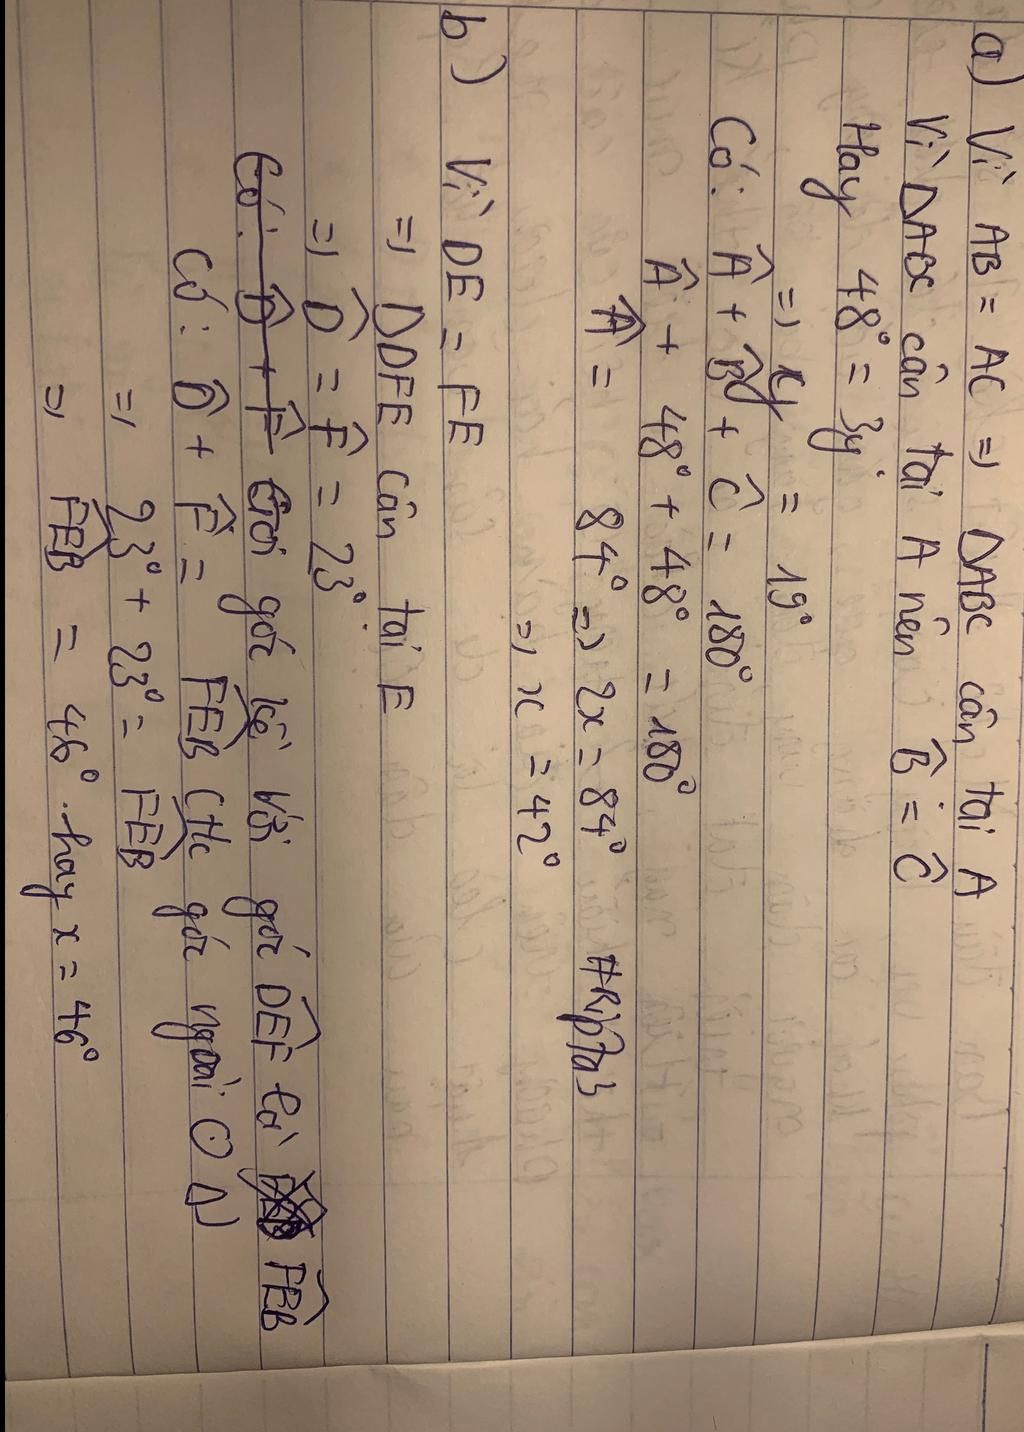 a) Vì AB = AC => ΔABC cân tại A
Vì ΔABC cân tại A nên B̂ = Ĉ
Hay 48° = 3y
=> y = 19°
Có: Â + B̂ + Ĉ = 180°
Â + 48° + 48° = 180°
Â = 84° => 2x = 84° #Ripta3
=> x = 42°
b) Vì DE = FE
=> ΔDFE cân tại E
=> D̂ = F̂ = 23°.
Có: D̂ + F̂ Gọi góc kề với góc DEF là FEB
Có: D̂ + F̂ = FEB (t/c góc ngoài Δ)
=> 23° + 23° = FEB
=> FEB = 46° hay x = 46°